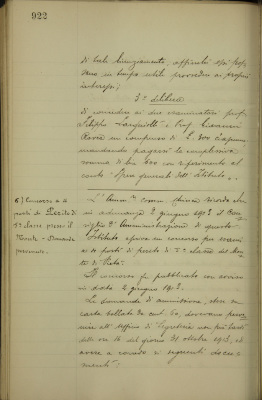 922
di tale licenziamento, affinchè essi pos-
sano in tempo utile provvedere ai propri
interessi;
3° delibera
di concedere ai due esaminatori prof.
Prof. Giovanni
un compenso di L. 300 ciascuno,
mandando pagarsi la complessiva
somma di lire 600 con riferimento al
conto "Spese generali dell'Istituto".
6) Concorso a 2
posti di Perito di
2ª classe presso il
Monte - Domande
pervenute.
ricorda che
in adunanza 2 giugno 1913 il Con-
siglio d'Amministrazione di questo
Istituto apriva un concorso per esami
a posti di perito di 2ª classe del Mon-
te di Pietà.
Il concorso fu pubblicato con avviso
in data 2 giugno 1913.
Le domande di ammissione, stese su
carta bollata da cent. 60, dovevano perve-
nire all'ufficio di Segreteria non più tardi
delle ore 16 del giorno 31 ottobre 1913, ed
avere a corredo i seguenti docu-
menti: